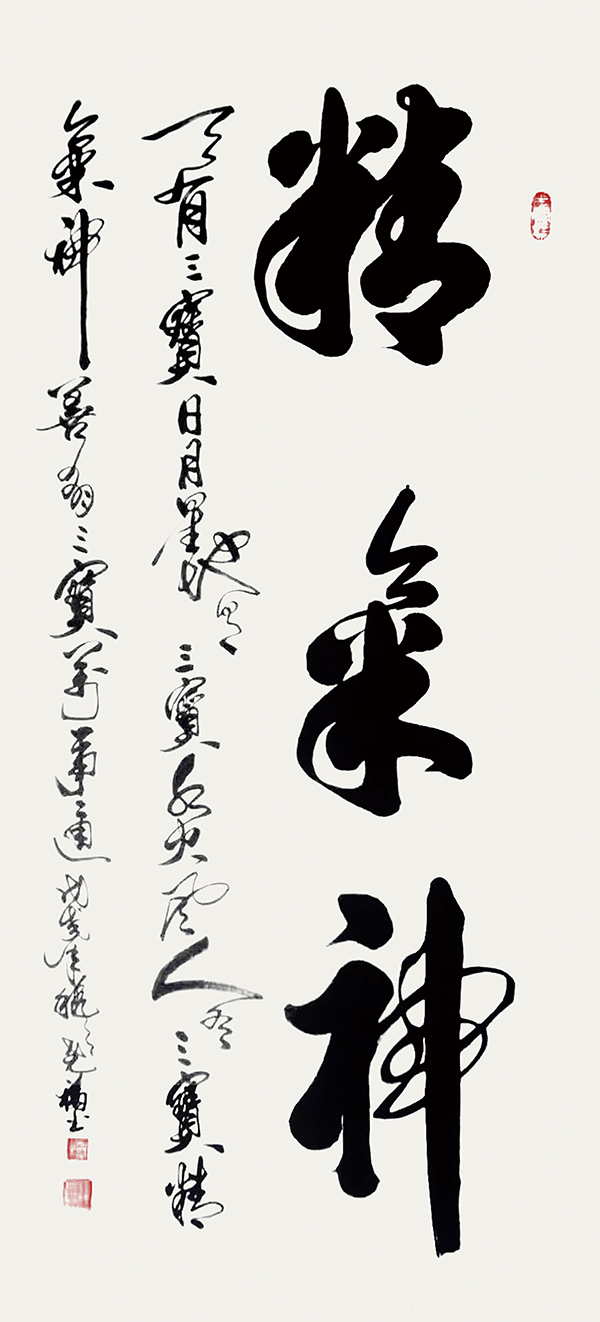 精氣神
天有三寶日月星地有三寶水火風人有三寶精
氣神善三寶萬事通